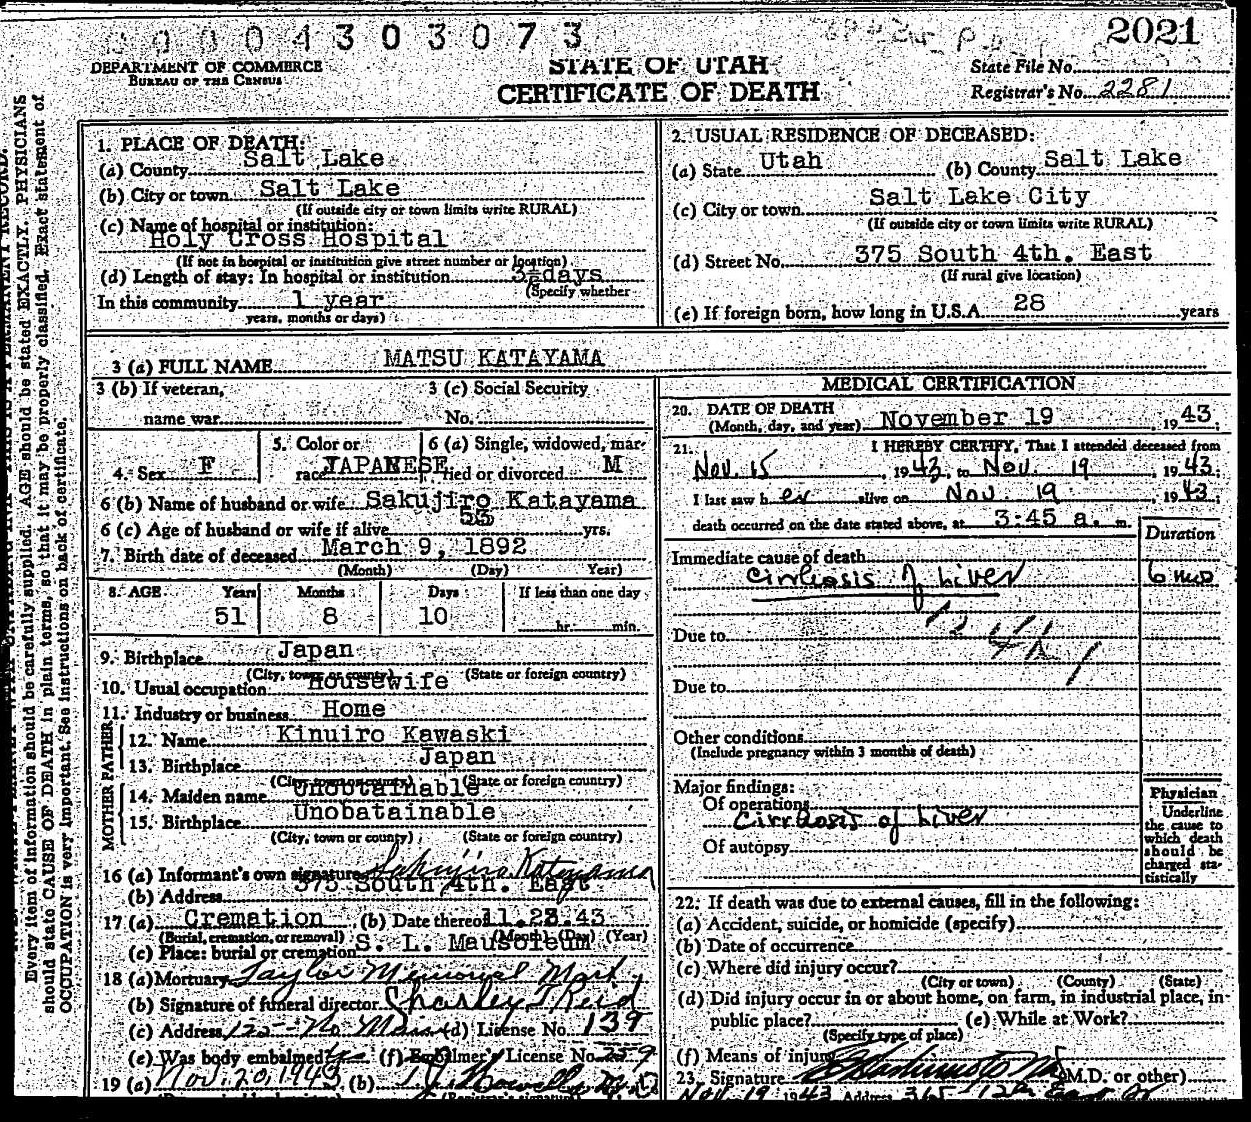 00004303073
2021
DEPARTMENT OF COMMERCE
BUREAU OF THE CENSUS
STATE OF UTAH
CERTIFICATE OF DEATH
State File No.
Registrar's No. 2281
Every item of information should be carefully supplied. AGE should be stated EXACTLY. PHYSICIANS
should state CAUSE OF DEATH in plain terms, so that it may be properly classified. Exact statement of
OCCUPATION is very important. See instructions on back of certificate.
1. PLACE OF DEATH:
(a) County Salt Lake
(b) City or town Salt Lake
(If outside city or town limits write RURAL)
(c) Name of hospital or institution:
Holy Cross Hospital
(If not in hospital or institution give street number or location)
(d) Length of stay: In hospital or institution 3½days
(Specify whether
In this community 1 year
years, months or days)
2. USUAL RESIDENCE OF DECEASED:
(a) State Utah (b) County Salt Lake
(c) City or town Salt Lake City
(If outside city or town limits write RURAL)
(d) Street No. 375 South 4th. East
(If rural give location)
(e) If foreign born, how long in U.S.A. 28 years
3 (a) FULL NAME MATSU KATAYAMA
3 (b) If veteran, 3 (c) Social Security
name war No.
4. Sex F 5. Color or race JAPANESE 6 (a) Single, widowed, married or divorced M
6 (b) Name of husband or wife Sakujiro Katayama
6 (c) Age of husband or wife if alive yrs.
7. Birth date of deceased March 9, 1892
(Month) (Day) Year)
8. AGE Years Months Days If less than one day
51 8 10 hr. min.
9. Birthplace Japan
(City, town or county) (State or foreign country)
10. Usual occupation Housewife
11. Industry or business Home
FATHER
12. Name Kinuiro Kawaski
13. Birthplace Japan
(City, town or county) (State or foreign country)
MOTHER
14. Maiden name Unobtainable
15. Birthplace Unobatainable
(City, town or county) (State or foreign country)
16 (a) Informant's own signature Sakujiro Katayama
(b) Address 375 South 4th. East
17 (a) Cremation (b) Date thereof 11.23.43
(Burial, cremation, or removal) (Month) (Day) (Year)
(c) Place: burial or cremation S. L. Mausoleum
18 (a) Mortuary Taylor Memorial Mort.
(b) Signature of funeral director Charley T Reid
(c) Address 125 No. Main (d) License No. 139
(e) Was body embalmed Yes (f) Embalmer's License No. 259
19 (a) Nov. 20, 1943 (b)
MEDICAL CERTIFICATION
20. DATE OF DEATH
(Month, day, and year) November 19, 1943
21. I HEREBY CERTIFY, That I attended deceased from
Nov. 15, 1943, to Nov. 19, 1943.
I last saw her alive on Nov. 19, 1943,
death occurred on the date stated above, at 3:45 a. m.
Duration
Immediate cause of death
Cirrhosis of Liver 6 mo
Due to
Due to
Other conditions
(Include pregnancy within 3 months of death)
Major findings:
Of operations
Cirrhosis of Liver
Of autopsy
Physician
Underline
the cause to
which death
should be
charged sta-
tistically
22. If death was due to external causes, fill in the following:
(a) Accident, suicide, or homicide (specify)
(b) Date of occurrence
(c) Where did injury occur?
(City or town) (County) (State)
(d) Did injury occur in or about home, on farm, in industrial place, in
public place? (e) While at Work?
(Specify type of place)
(f) Means of injury
23. Signature (M.D. or other)
Nov. 19 1943 Address